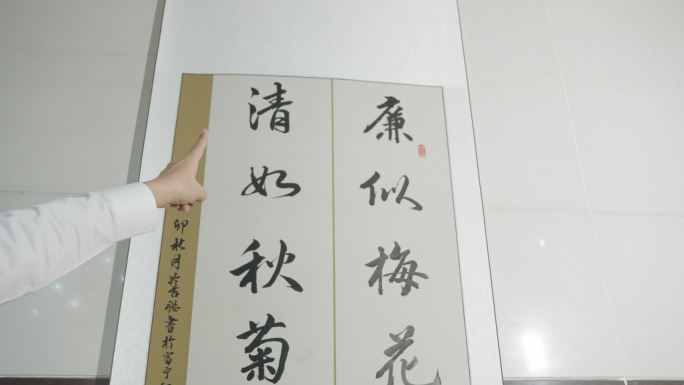 廉似梅花
清如秋菊
卯秋月
書於富宁